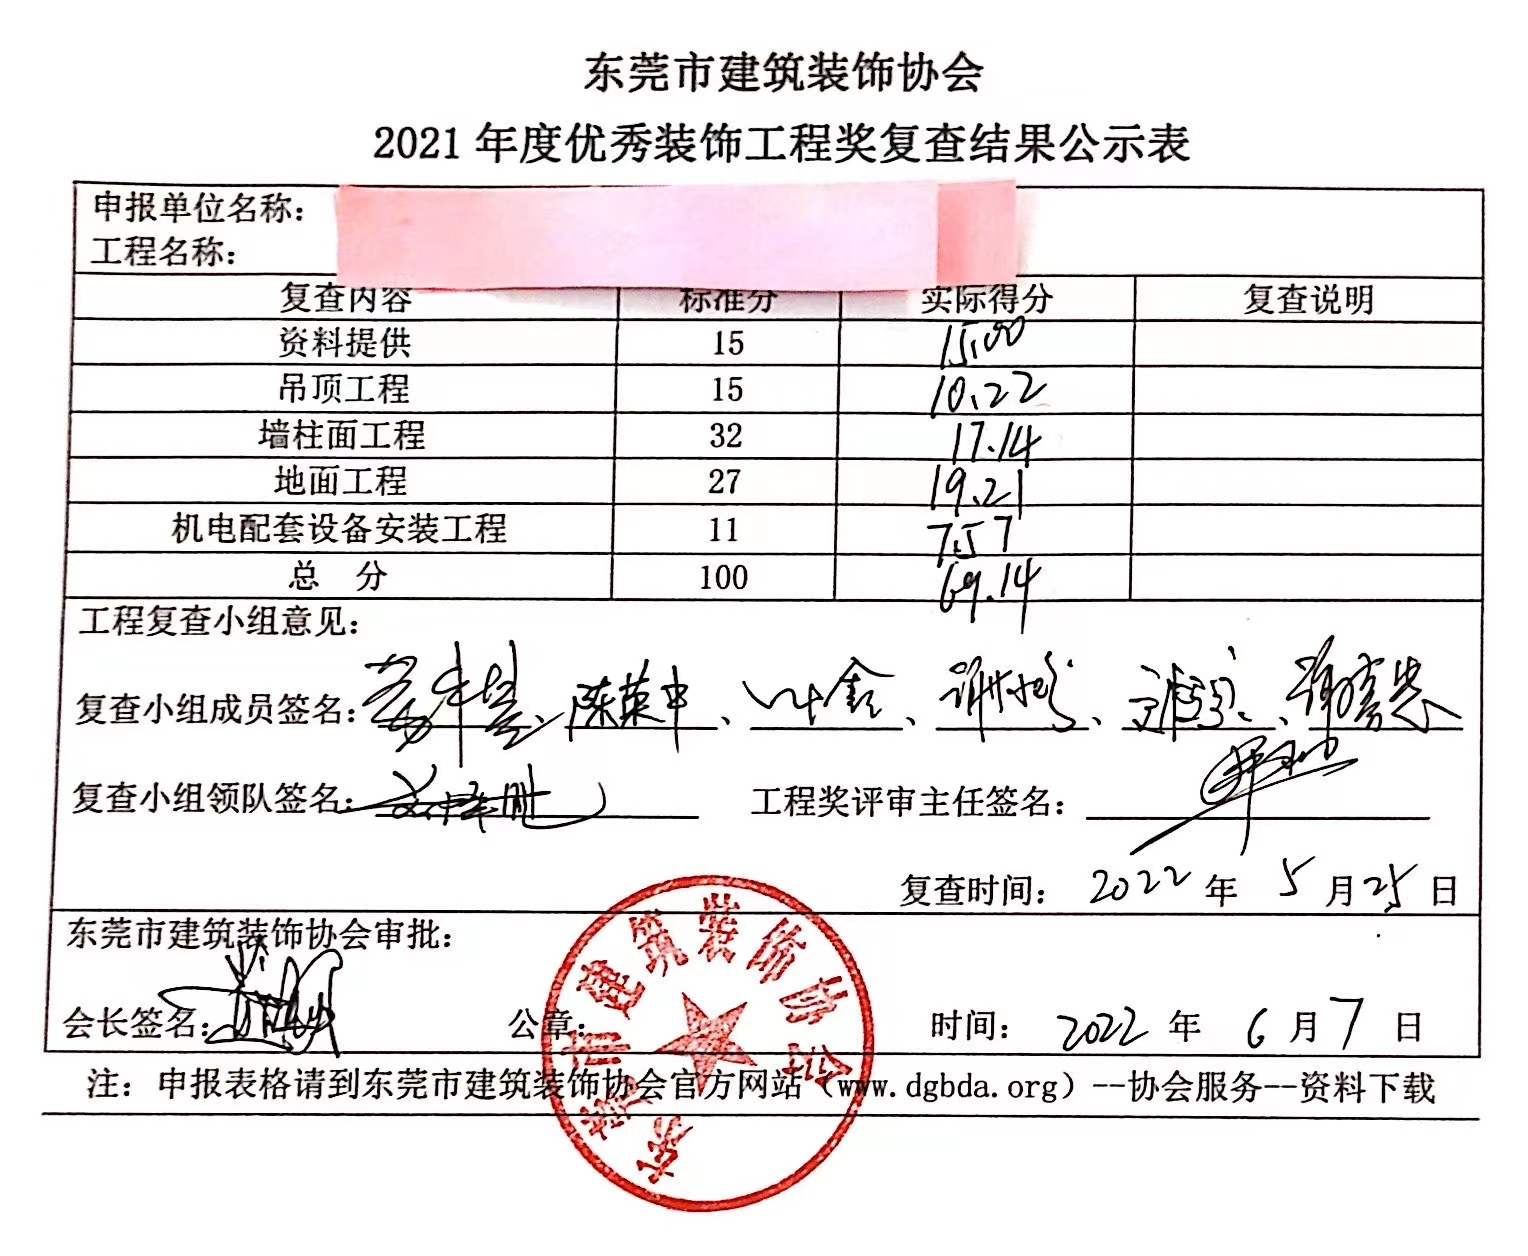 东莞市建筑装饰协会
2021 年度优秀装饰工程奖复查结果公示表
申报单位名称：
工程名称：
复查内容 标准分 实际得分 复查说明
资料提供 15 15.00
吊顶工程 15 10.22
墙柱面工程 32 17.14
地面工程 27 19.21
机电配套设备安装工程 11 7.57
总 分 100 69.14
工程复查小组意见：
复查小组成员签名： 、陈荣中、叶鑫、 、 、
复查小组领队签名： 工程奖评审主任签名：
复查时间： 2022 年 5 月 25 日
东莞市建筑装饰协会审批：
会长签名： 公章： 时间： 2022 年 6 月 7 日
东莞市建筑装饰协会
注：申报表格请到东莞市建筑装饰协会官方网站（www.dgbda.org）--协会服务--资料下载